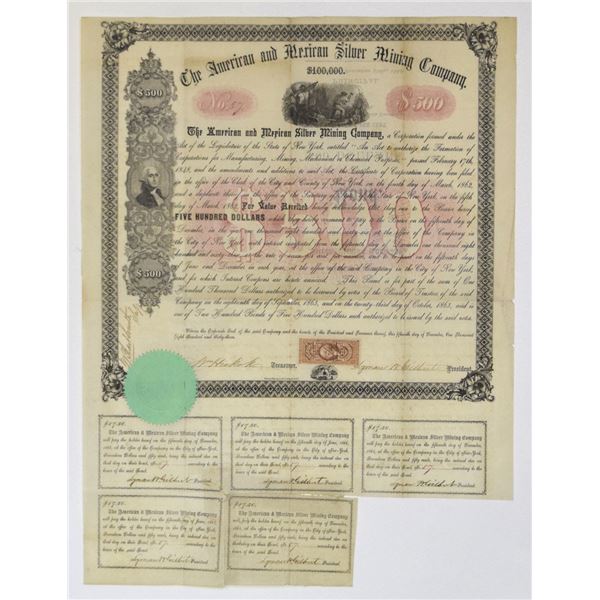 The American and Mexican Silver Mining Company.
$100,000.
$500
No. 57
$500
The American and Mexican Silver Mining Company, a Corporation formed under the
Act of the Legislature of the State of New York, entitled "An Act to authorize the Formation of
Corporations for Manufacturing, Mining, Mechanical or Chemical Purposes," passed February 17th,
1848, and the amendments and additions to said Act, the Certificate of Corporation having been filed
in the office of the Clerk of the City and County of New York, on the fourth day of March, 1862,
and a duplicate thereof in the office of the Secretary of State of New York, on the fifth
day of March, 1862, For Value Received hereby acknowledge that they owe to the Bearer hereof
FIVE HUNDRED DOLLARS which they hereby promise to pay to the Bearer on the fifteenth day of
December, in the year one thousand eight hundred and sixty at the office of the Company in
the City of New York, with interest computed from the fifteenth day of December one thousand eight
hundred and sixty at the rate of seven per cent per annum, to be paid on the fifteenth days
of June and December in each year, at the office of the said Company in the City of New York,
and for which Interest Coupons are hereto annexed. This Bond is for part of the sum of One
Hundred Thousand Dollars authorized to be issued by votes of the Board of Trustees of the said
Company on the eighteenth day of September, 1863, and on the twenty third day of October, 1863, and is
one of Two Hundred Bonds of Five Hundred Dollars each authorized to be issued by the said votes.
Witness the Corporate Seal of the said Company and the hands of the President and Treasurer thereof, this fifteenth day of December, One Thousand
Eight Hundred and Sixty three.
$500
Treasurer.
Lyman W. Gilbert President.
$17.50.
The American & Mexican Silver Mining Company
will pay the holder hereof on the fifteenth day of December,
at the office of the Company in the City of New York,
Seventeen Dollars and fifty cents, being the interest due on
that day on their Bond, No. 57 according to the
tenor of the said Bond.
Lyman W. Gilbert President.
$17.50.
The American & Mexican Silver Mining Company
will pay the holder hereof on the fifteenth day of June,
at the office of the Company in the City of New York,
Seventeen Dollars and fifty cents, being the interest due on
that day on their Bond, No. 57 according to the
tenor of the said Bond.
Lyman W. Gilbert President.
$17.50.
The American & Mexican Silver Mining Company
will pay the holder hereof on the fifteenth day of December,
at the office of the Company in the City of New York,
Seventeen Dollars and fifty cents, being the interest due on
that day on their Bond, No. 57 according to the
tenor of the said Bond.
Lyman W. Gilbert President.
$17.50.
The American & Mexican Silver Mining Company
will pay the holder hereof on the fifteenth day of June,
at the office of the Company in the City of New York,
Seventeen Dollars and fifty cents, being the interest due on
that day on their Bond, No. 57 according to the
tenor of the said Bond.
Lyman W. Gilbert President.
$17.50.
The American & Mexican Silver Mining Company
will pay the holder hereof on the fifteenth day of December,
at the office of the Company in the City of New York,
Seventeen Dollars and fifty cents, being the interest due on
that day on their Bond, No. 57 according to the
tenor of the said Bond.
Lyman W. Gilbert President.